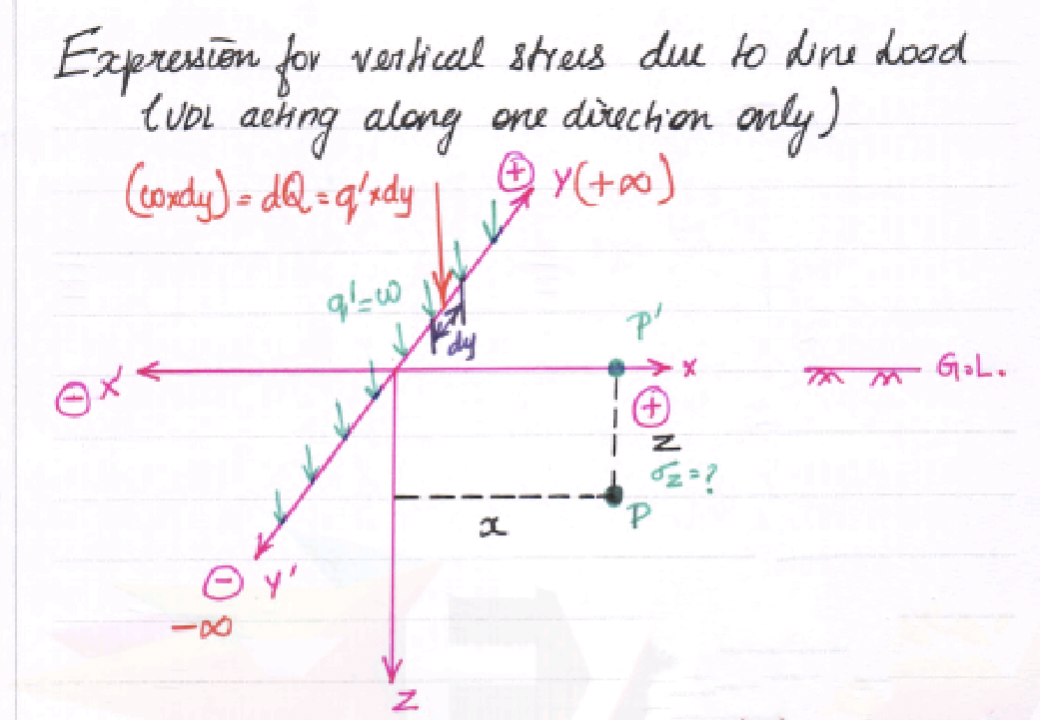 Expression for vertical stress due to Line Load
(UDL acting along one direction only)
(ωxdy) = dQ = q'xdy
⊕ Y(+∞)
q'=ω
dy
P'
⊖ X'
x
G.L.
⊕
z
σz=?
P
x
⊖ Y'
-∞
z